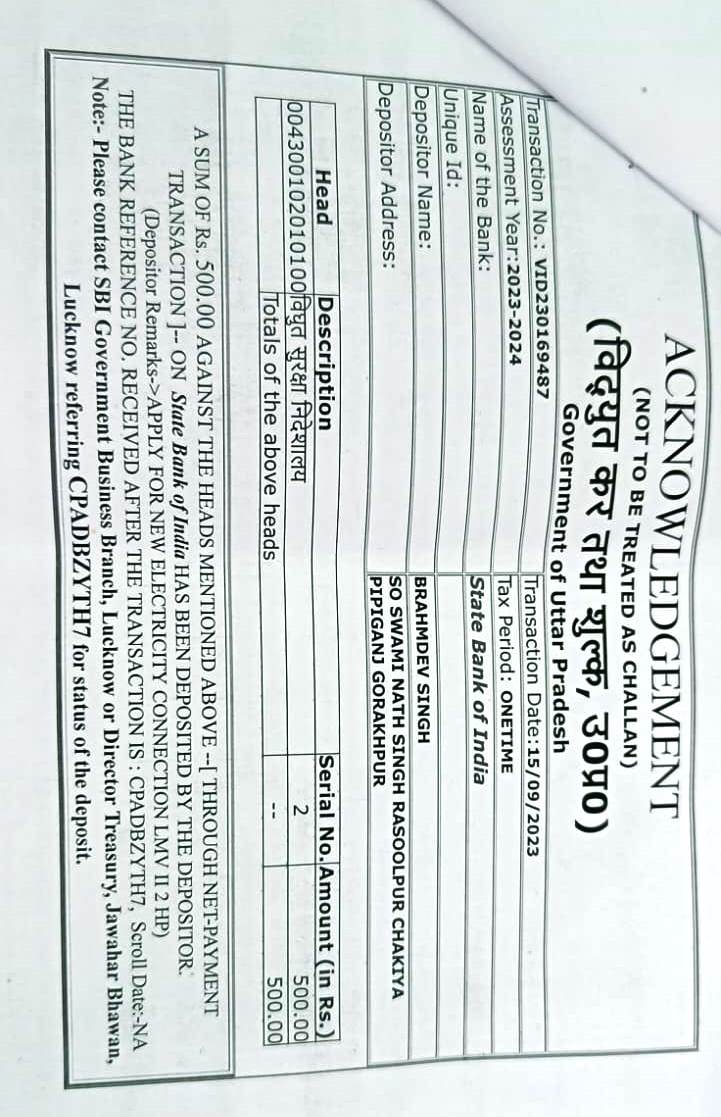 ACKNOWLEDGEMENT
(NOT TO BE TREATED AS CHALLAN)
(विद्युत कर तथा शुल्क, उ0प्र0)
Government of Uttar Pradesh
Transaction No.: VID230169487 Transaction Date:15/09/2023
Assessment Year:2023-2024 Tax Period: ONETIME
Name of the Bank: State Bank of India
Unique Id:
Depositor Name: BRAHMDEV SINGH
Depositor Address: SO SWAMI NATH SINGH RASOOLPUR CHAKIYA
PIPIGANJ GORAKHPUR
Head Description Serial No. Amount (in Rs.)
004300102010100 विघुत सुरक्षा निदेशालय 2 500.00
Totals of the above heads -- 500.00
A SUM OF Rs. 500.00 AGAINST THE HEADS MENTIONED ABOVE --[ THROUGH NET-PAYMENT
TRANSACTION ]-- ON State Bank of India HAS BEEN DEPOSITED BY THE DEPOSITOR.
(Depositor Remarks->APPLY FOR NEW ELECTRICITY CONNECTION LMV II 2 HP)
THE BANK REFERENCE NO. RECEIVED AFTER THE TRANSACTION IS : CPADBZYTH7, Scroll Date:-NA
Note:- Please contact SBI Government Business Branch, Lucknow or Director Treasury, Jawahar Bhawan,
Lucknow referring CPADBZYTH7 for status of the deposit.